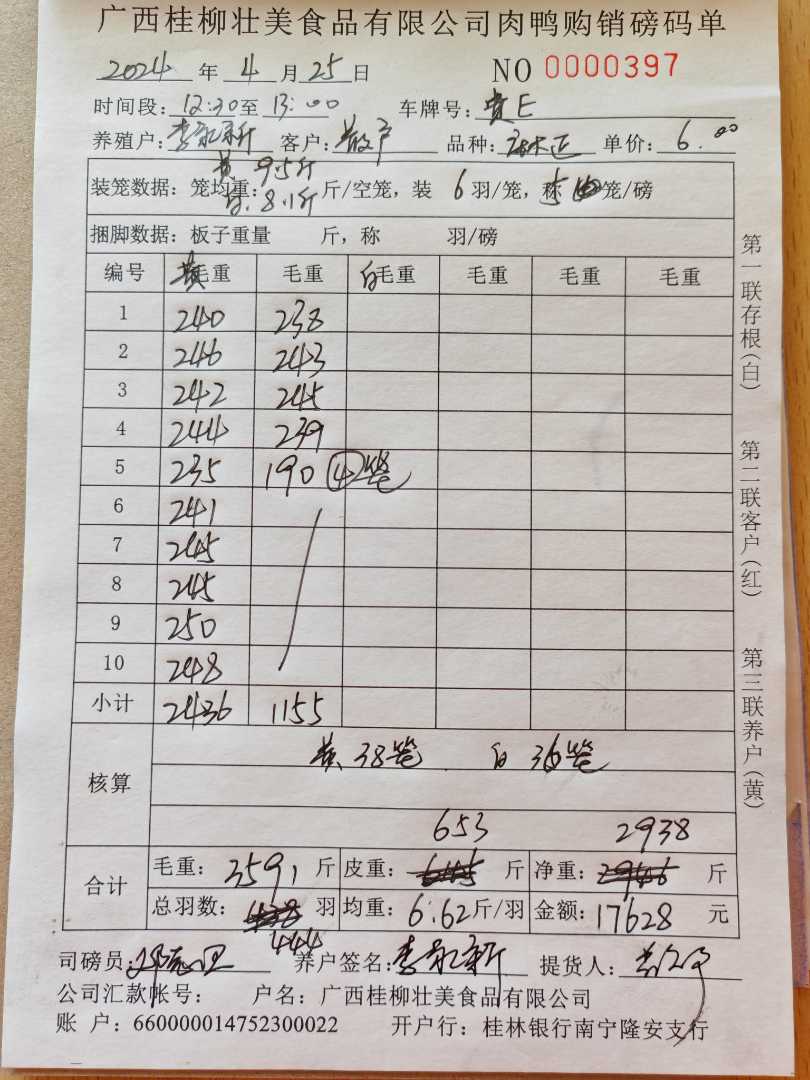 广西桂柳壮美食品有限公司肉鸭购销磅码单
2024 年 4 月 25 日 NO 0000397
时间段: 12:30至 13:00 车牌号: 贵E
养殖户: 李永新 客户: 散户 品种: 单价: 6.00
黄 9.5斤
装笼数据: 笼均重: 斤/空笼, 装 6 羽/笼, 称 笼/磅
白. 8.1斤
捆脚数据: 板子重量 斤, 称 羽/磅
编号 黄毛重 毛重 白毛重 毛重 毛重 毛重
1 240 238
2 246 243
3 242 245
4 244 239
5 235 190 ④笼
6 241
7 245
8 245
9 250
10 248
小计 2436 1155
核算 黄 38笼 白 36笼
653 2938
合计 毛重: 3591 斤 皮重: 斤 净重: 斤
总羽数: 羽 均重: 6.62斤/羽 金额: 17628 元
444
司磅员: 养户签名: 李永新 提货人:
公司汇款帐号: 户名: 广西桂柳壮美食品有限公司
账 户: 660000014752300022 开户行: 桂林银行南宁隆安支行
第一联存根(白) 第二联客户(红) 第三联养户(黄)